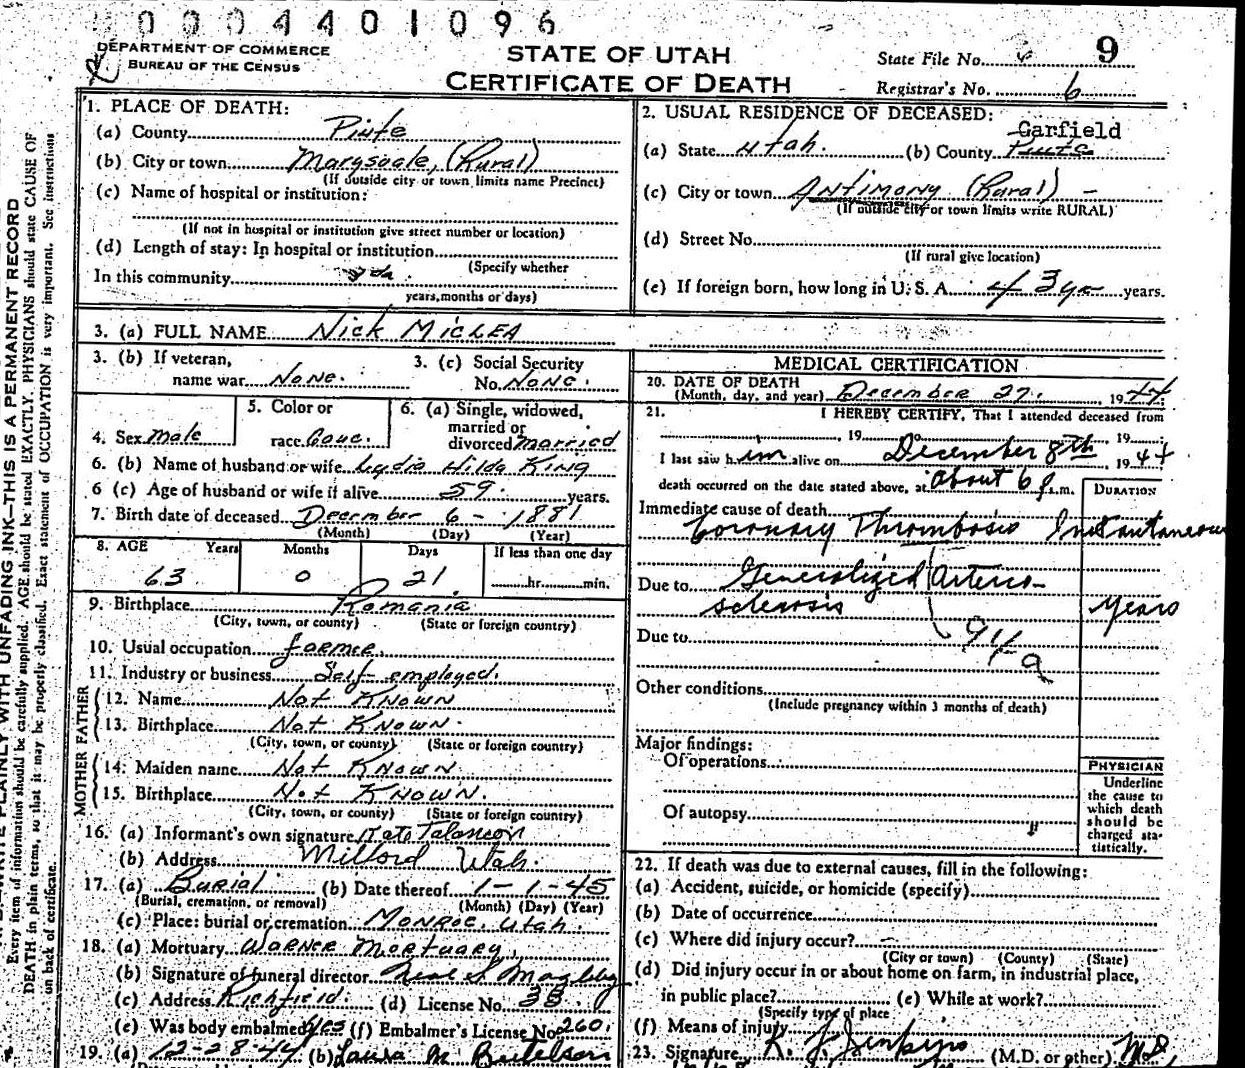 0004401096
DEPARTMENT OF COMMERCE
BUREAU OF THE CENSUS
STATE OF UTAH
CERTIFICATE OF DEATH
State File No. 9
Registrar's No. 6
1. PLACE OF DEATH:
(a) County Piute
(b) City or town Marysvale, (Rural)
(If outside city or town limits name Precinct)
(c) Name of hospital or institution:
(If not in hospital or institution give street number or location)
(d) Length of stay: In hospital or institution
(Specify whether
In this community
years, months or days)
2. USUAL RESIDENCE OF DECEASED:
Garfield
(a) State Utah. (b) County Piute
(c) City or town Antimony (Rural) -
(If outside city or town limits write RURAL)
(d) Street No.
(If rural give location)
(e) If foreign born, how long in U. S. A. 43 yrs years.
3. (a) FULL NAME Nick Miclea
3. (b) If veteran,
name war None.
3. (c) Social Security
No. None.
4. Sex male
5. Color or
race Cauc.
6. (a) Single, widowed,
married or
divorced married
6. (b) Name of husband or wife Lydia Hilda King
6 (c) Age of husband or wife if alive 59 years.
7. Birth date of deceased December 6 - 1881
(Month) (Day) (Year)
8. AGE Years Months Days If less than one day
63 0 21 hr. min.
9. Birthplace Romania
(City, town, or county) (State or foreign country)
10. Usual occupation farmer.
11. Industry or business Self employed.
FATHER
12. Name Not Known
13. Birthplace Not Known.
(City, town, or county) (State or foreign country)
MOTHER
14. Maiden name Not Known
15. Birthplace Not Known.
(City, town, or county) (State or foreign country)
16. (a) Informant's own signature
(b) Address Milford Utah.
17. (a) Burial (b) Date thereof 1-1-45
(Burial, cremation, or removal) (Month) (Day) (Year)
(c) Place: burial or cremation Monroe, Utah.
18. (a) Mortuary Warner Mortuary,
(b) Signature of funeral director Neal S. Magleby
(c) Address Richfield. (d) License No. 33.
(e) Was body embalmed yes (f) Embalmer's License No. 260.
19. (a) 12-28-44 (b) Laura M.
MEDICAL CERTIFICATION
20. DATE OF DEATH
(Month, day, and year) December 27. , 1944
21. I HEREBY CERTIFY, That I attended deceased from
, 19 , 19
I last saw him alive on December 8th, 1944
death occurred on the date stated above, at About 6 p.m.
DURATION
Immediate cause of death
Coronary Thrombosis Instantaneous
Due to Generalized Arterio-
sclerosis years
Due to 94a
Other conditions
(Include pregnancy within 3 months of death)
Major findings:
Of operations
Of autopsy
PHYSICIAN
Underline
the cause to
which death
should be
charged sta-
tistically.
22. If death was due to external causes, fill in the following:
(a) Accident, suicide, or homicide (specify)
(b) Date of occurrence
(c) Where did injury occur?
(City or town) (County) (State)
(d) Did injury occur in or about home on farm, in industrial place,
in public place? (e) While at work?
(Specify type of place
(f) Means of injury
23. Signature K. J. Jenkins (M.D. or other) M.D.
WRITE PLAINLY WITH UNFADING INK—THIS IS A PERMANENT RECORD
Every item of information should be carefully supplied. AGE should be stated EXACTLY. PHYSICIANS should state CAUSE OF
DEATH in plain terms, so that it may be properly classified. Exact statement of OCCUPATION is very important. See instructions
on back of certificate.